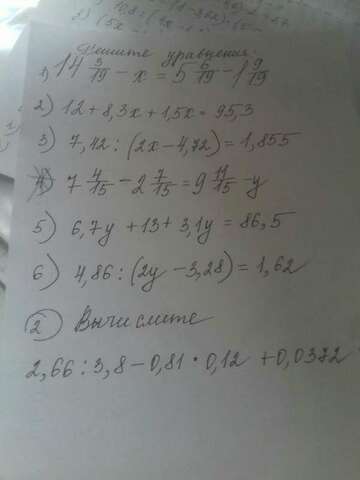 Решите уравнения.
1) 14 3/19 - x = 5 6/19 - 1 9/19
2) 12 + 8,3x + 1,5x = 95,3
3) 7,42 : (2x - 4,72) = 1,855
4) 7 4/15 - 2 7/15 = 9 11/15 - y
5) 6,7y + 13 + 3,1y = 86,5
6) 4,86 : (2y - 3,28) = 1,62
2) Вычислите
2,66 : 3,8 - 0,81 · 0,12 + 0,0372